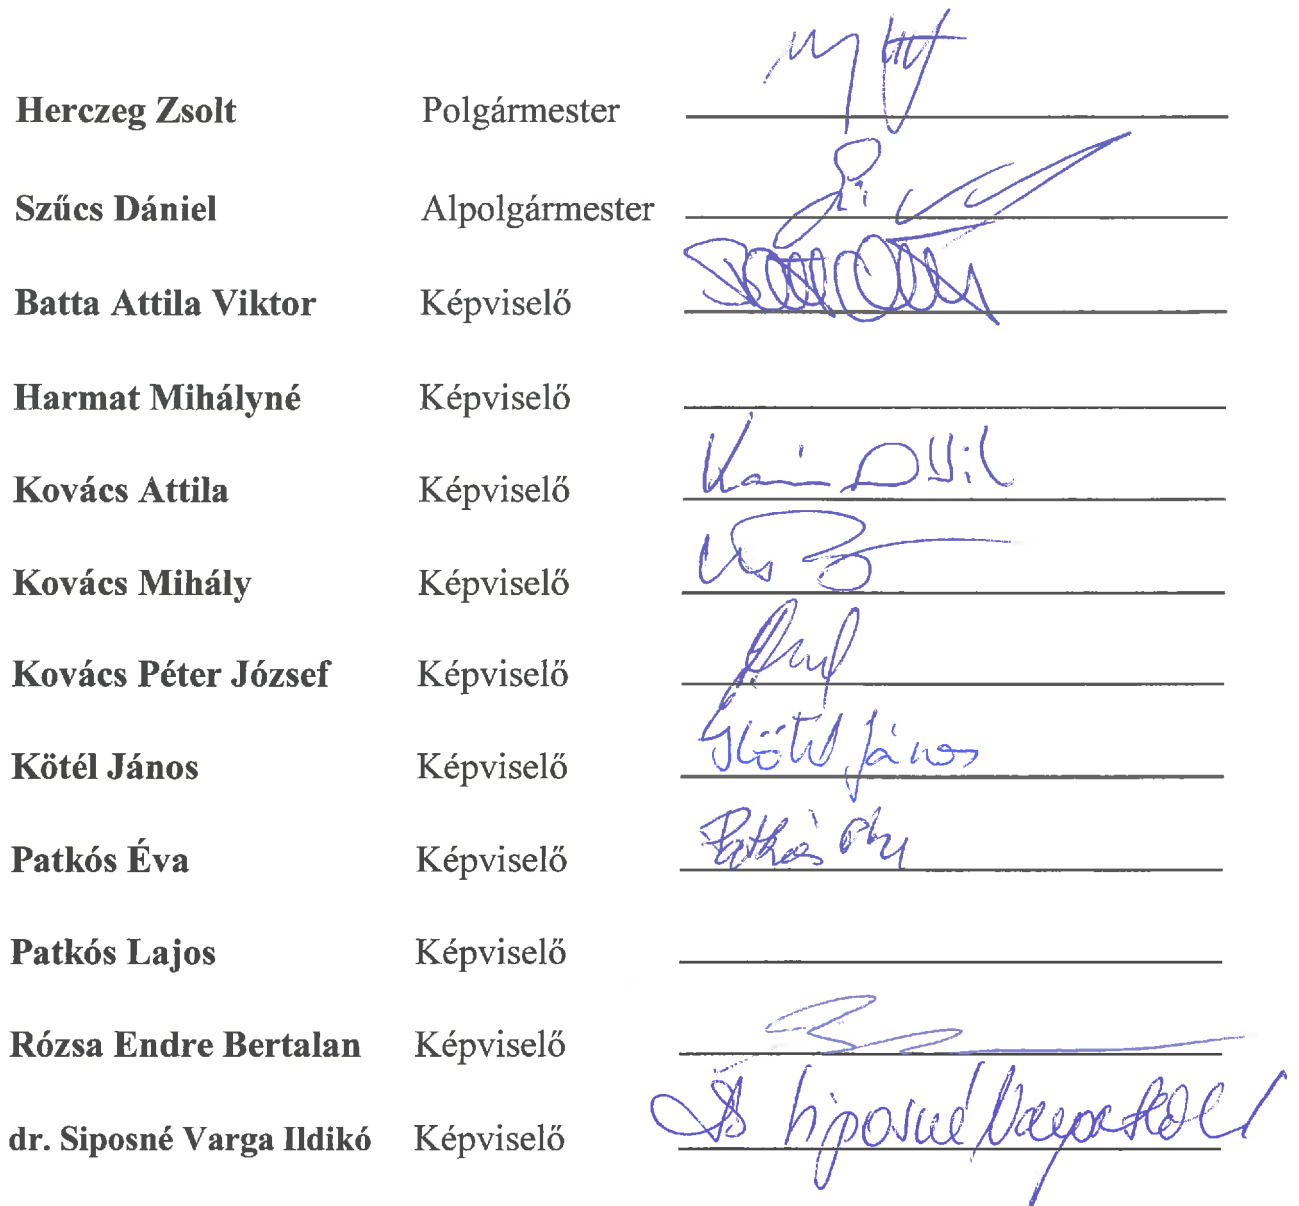 Herczeg Zsolt Polgármester
Szűcs Dániel Alpolgármester
Batta Attila Viktor Képviselő
Harmat Mihályné Képviselő
Kovács Attila Képviselő
Kovács Mihály Képviselő
Kovács Péter József Képviselő
Kötél János Képviselő Kötél János
Patkós Éva Képviselő Patkós Éva
Patkós Lajos Képviselő
Rózsa Endre Bertalan Képviselő
dr. Siposné Varga Ildikó Képviselő dr Siposné Varga Ildikó